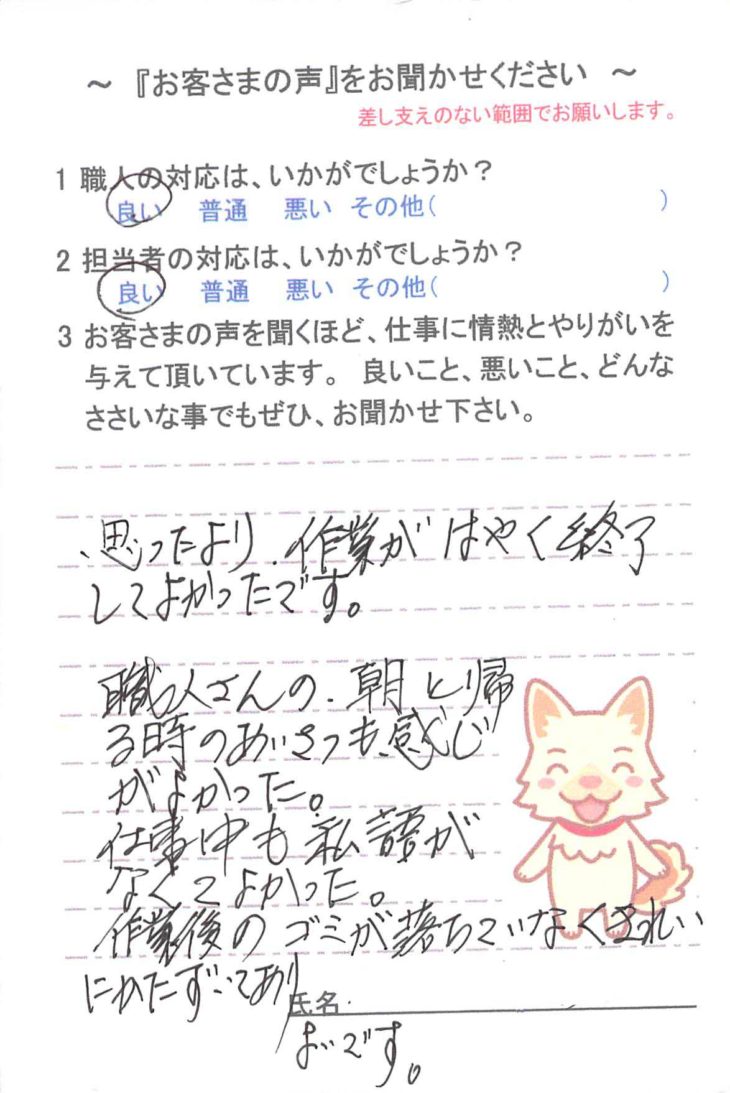 ～ 『お客さまの声』をお聞かせください ～
差し支えのない範囲でお願いします。
1 職人の対応は、いかがでしょうか？
良い 普通 悪い その他( )
2 担当者の対応は、いかがでしょうか？
良い 普通 悪い その他( )
3 お客さまの声を聞くほど、仕事に情熱とやりがいを
与えて頂いています。 良いこと、悪いこと、どんな
ささいな事でもぜひ、お聞かせ下さい。
思ったより、作業がはやく終了
してよかったです。
職人さんの、朝と帰
る時のあいさつも感じ
がよかった。
仕事中も私語が
なくてよかった。
作業後のゴミが落ちていなくきれい
にかたずいてあり
氏名
よいです。